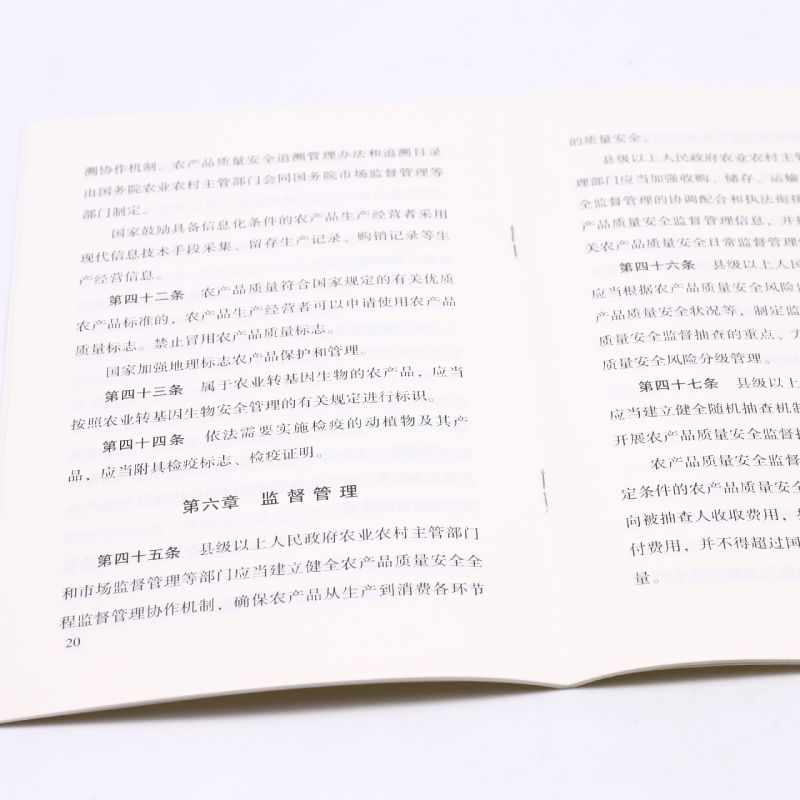 溯协作机制。农产品质量安全追溯管理办法和追溯目录
由国务院农业农村主管部门会同国务院市场监督管理等
部门制定。
国家鼓励具备信息化条件的农产品生产经营者采用
现代信息技术手段采集、留存生产记录、购销记录等生
产经营信息。
第四十二条 农产品质量符合国家规定的有关优质
农产品标准的，农产品生产经营者可以申请使用农产品
质量标志。禁止冒用农产品质量标志。
国家加强地理标志农产品保护和管理。
第四十三条 属于农业转基因生物的农产品，应当
按照农业转基因生物安全管理的有关规定进行标识。
第四十四条 依法需要实施检疫的动植物及其产
品，应当附具检疫标志、检疫证明。
第六章 监督管理
第四十五条 县级以上人民政府农业农村主管部门
和市场监督管理等部门应当建立健全农产品质量安全全
程监督管理协作机制，确保农产品从生产到消费各环节
20
的质量安全。
县级以上人民政府农业农村主管
理部门应当加强收购、储存、运输
全监督管理的协调配合和执法衔接
产品质量安全监督管理信息，并按
关农产品质量安全日常监督管理
第四十六条 县级以上人民
应当根据农产品质量安全风险
产品质量安全状况等，制定监
质量安全监督抽查的重点、方
质量安全风险分级管理。
第四十七条 县级以上
应当建立健全随机抽查机制
开展农产品质量安全监督
农产品质量安全监督
定条件的农产品质量安全
向被抽查人收取费用，
付费用，并不得超过国
量。